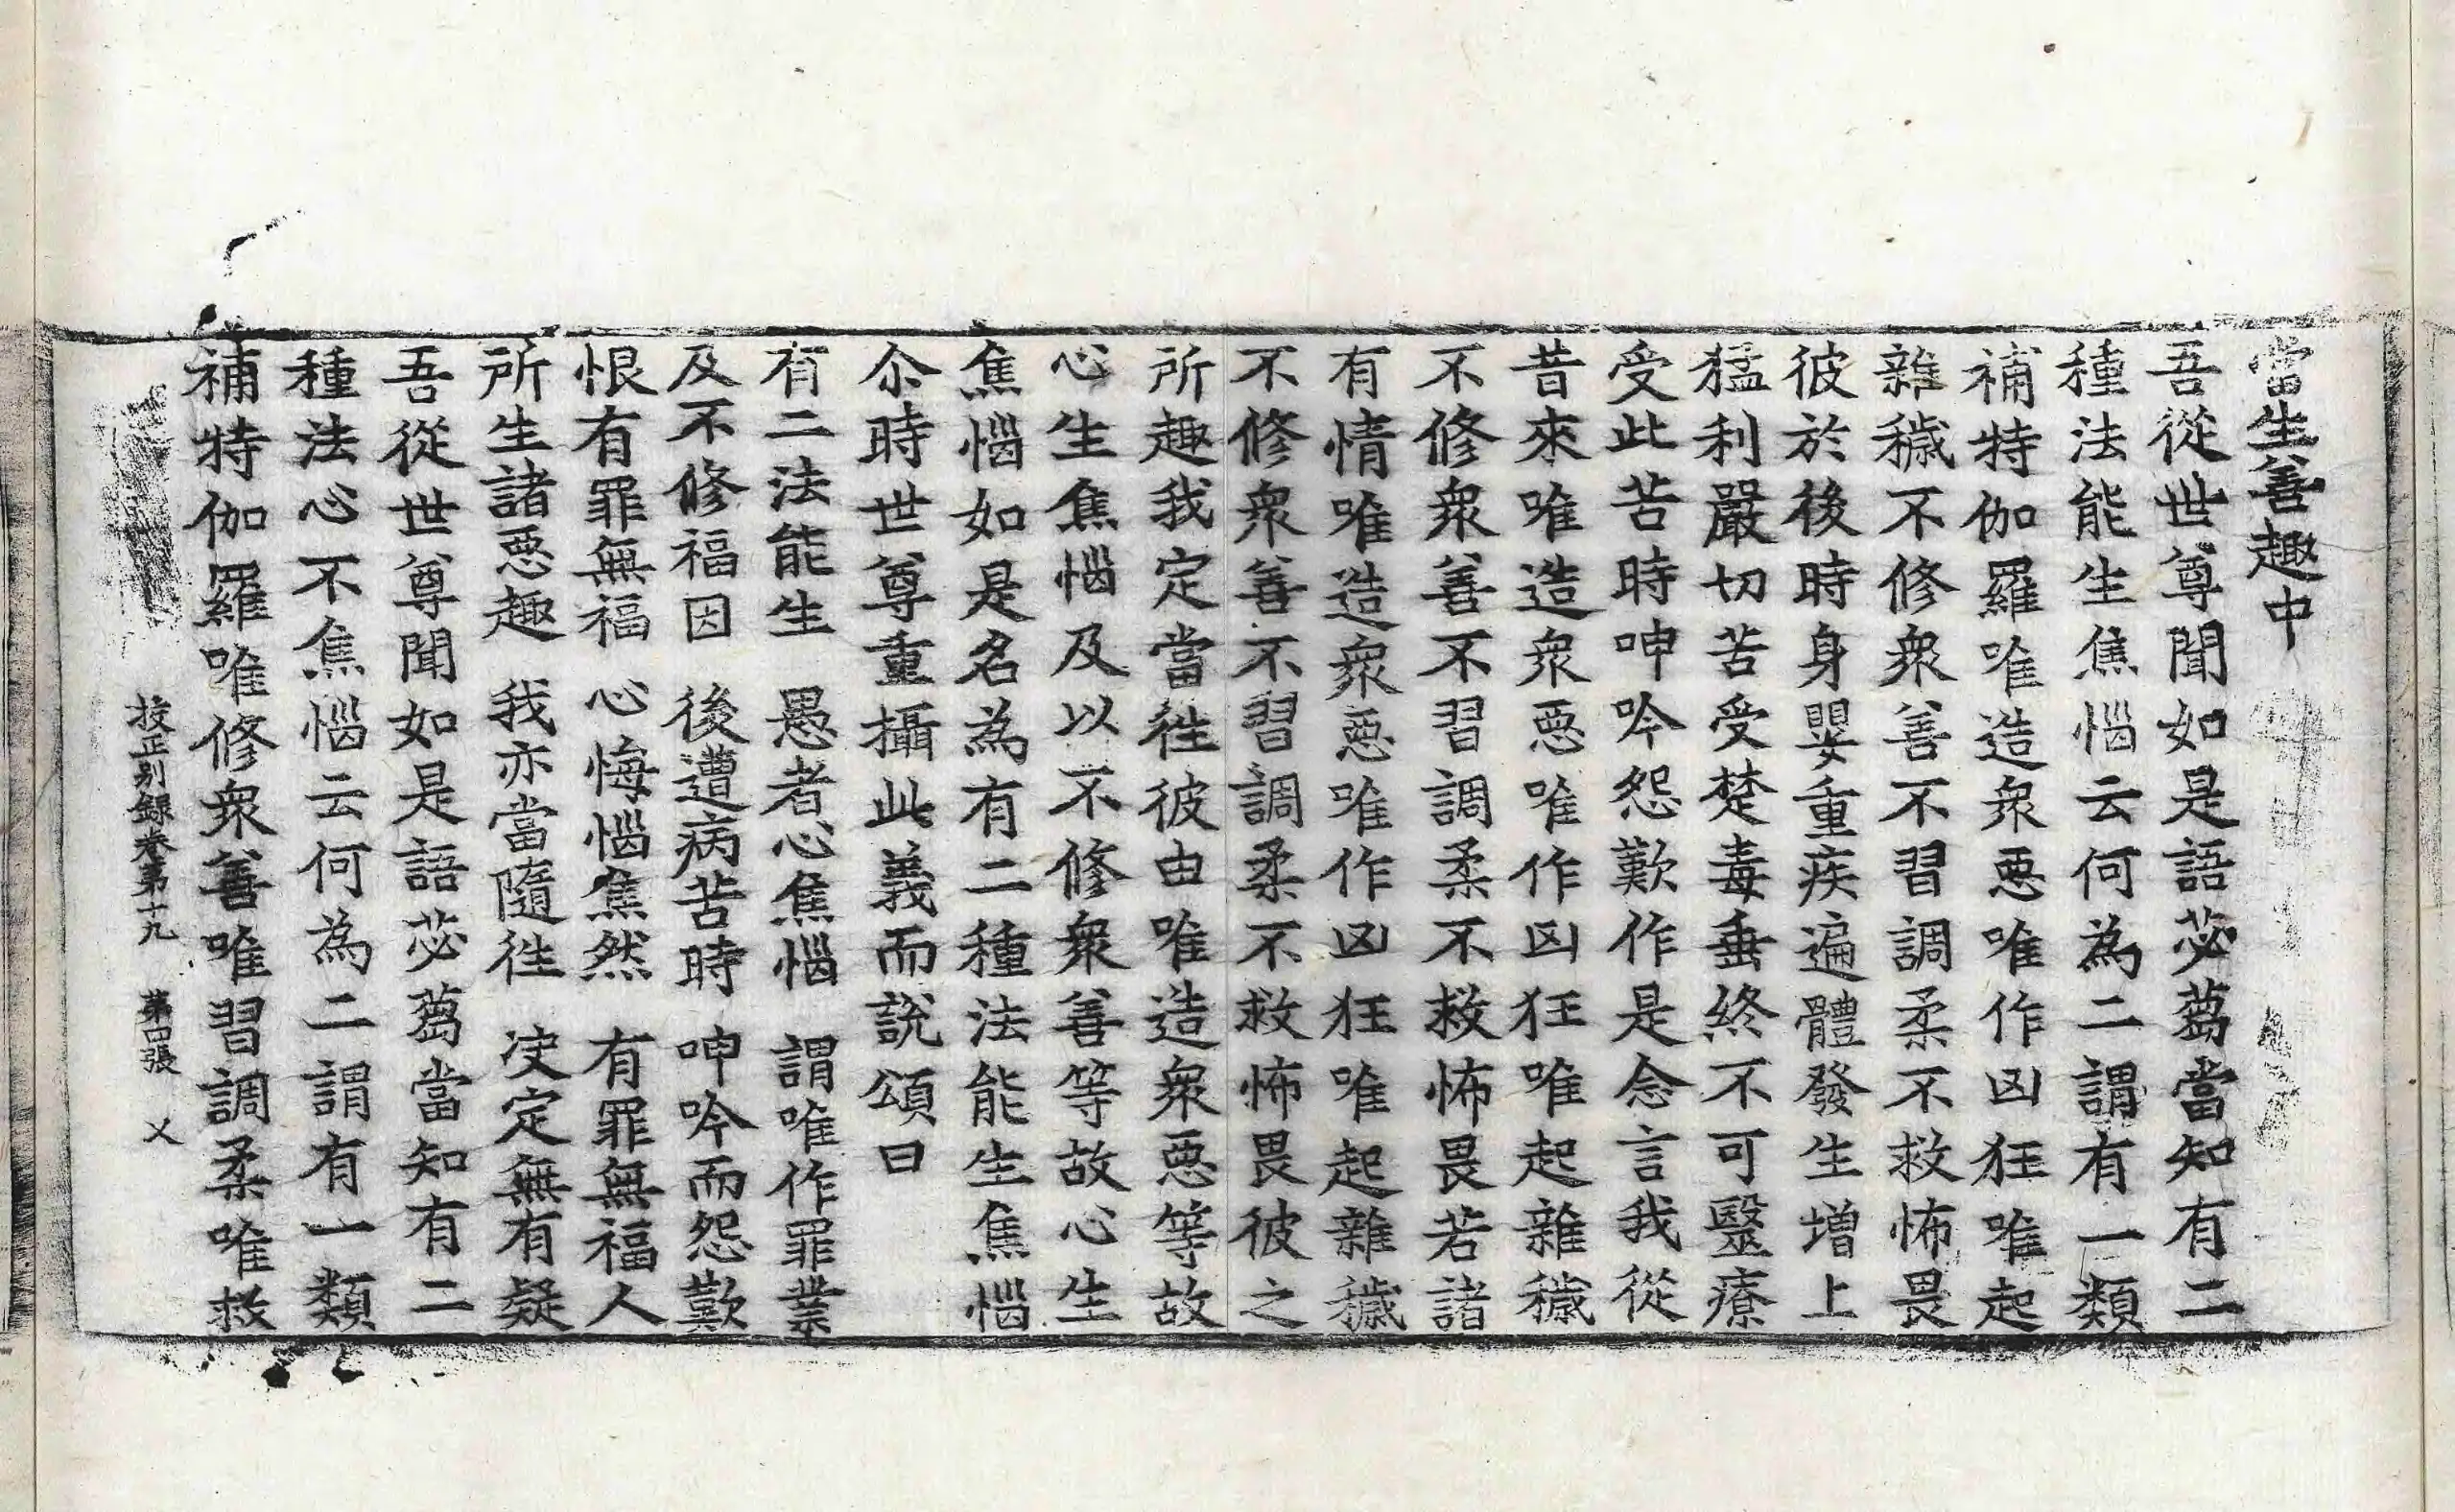 當生善趣中
吾從世尊聞如是語苾蒭當知有二
種法能生焦惱云何為二謂有一類
補特伽羅唯造衆惡唯作凶狂唯起
雜穢不修衆善不習調柔不救怖畏
彼於後時身嬰重疾遍體發生增上
猛利嚴切苦受楚毒垂終不可毉療
受此苦時呻吟怨歎作是念言我從
昔來唯造衆惡唯作凶狂唯起雜穢
不修衆善不習調柔不救怖畏若諸
有情唯造衆惡唯作凶狂唯起雜穢
不修衆善不習調柔不救怖畏彼之
所趣我定當往彼由唯造衆惡等故
心生焦惱及以不修衆善等故心生
焦惱如是名為有二種法能生焦惱
尒時世尊重攝此義而說頌曰
有二法能生　愚者心焦惱　謂唯作罪業
及不修福因　後遭病苦時　呻吟而怨歎
恨有罪無福　心悔惱焦然　有罪無福人
所生諸惡趣　我亦當隨往　决定無有疑
吾從世尊聞如是語苾蒭當知有二
種法心不焦惱云何為二謂有一類
補特伽羅唯修衆善唯習調柔唯救
挍正別録卷第十九　第四張　乂